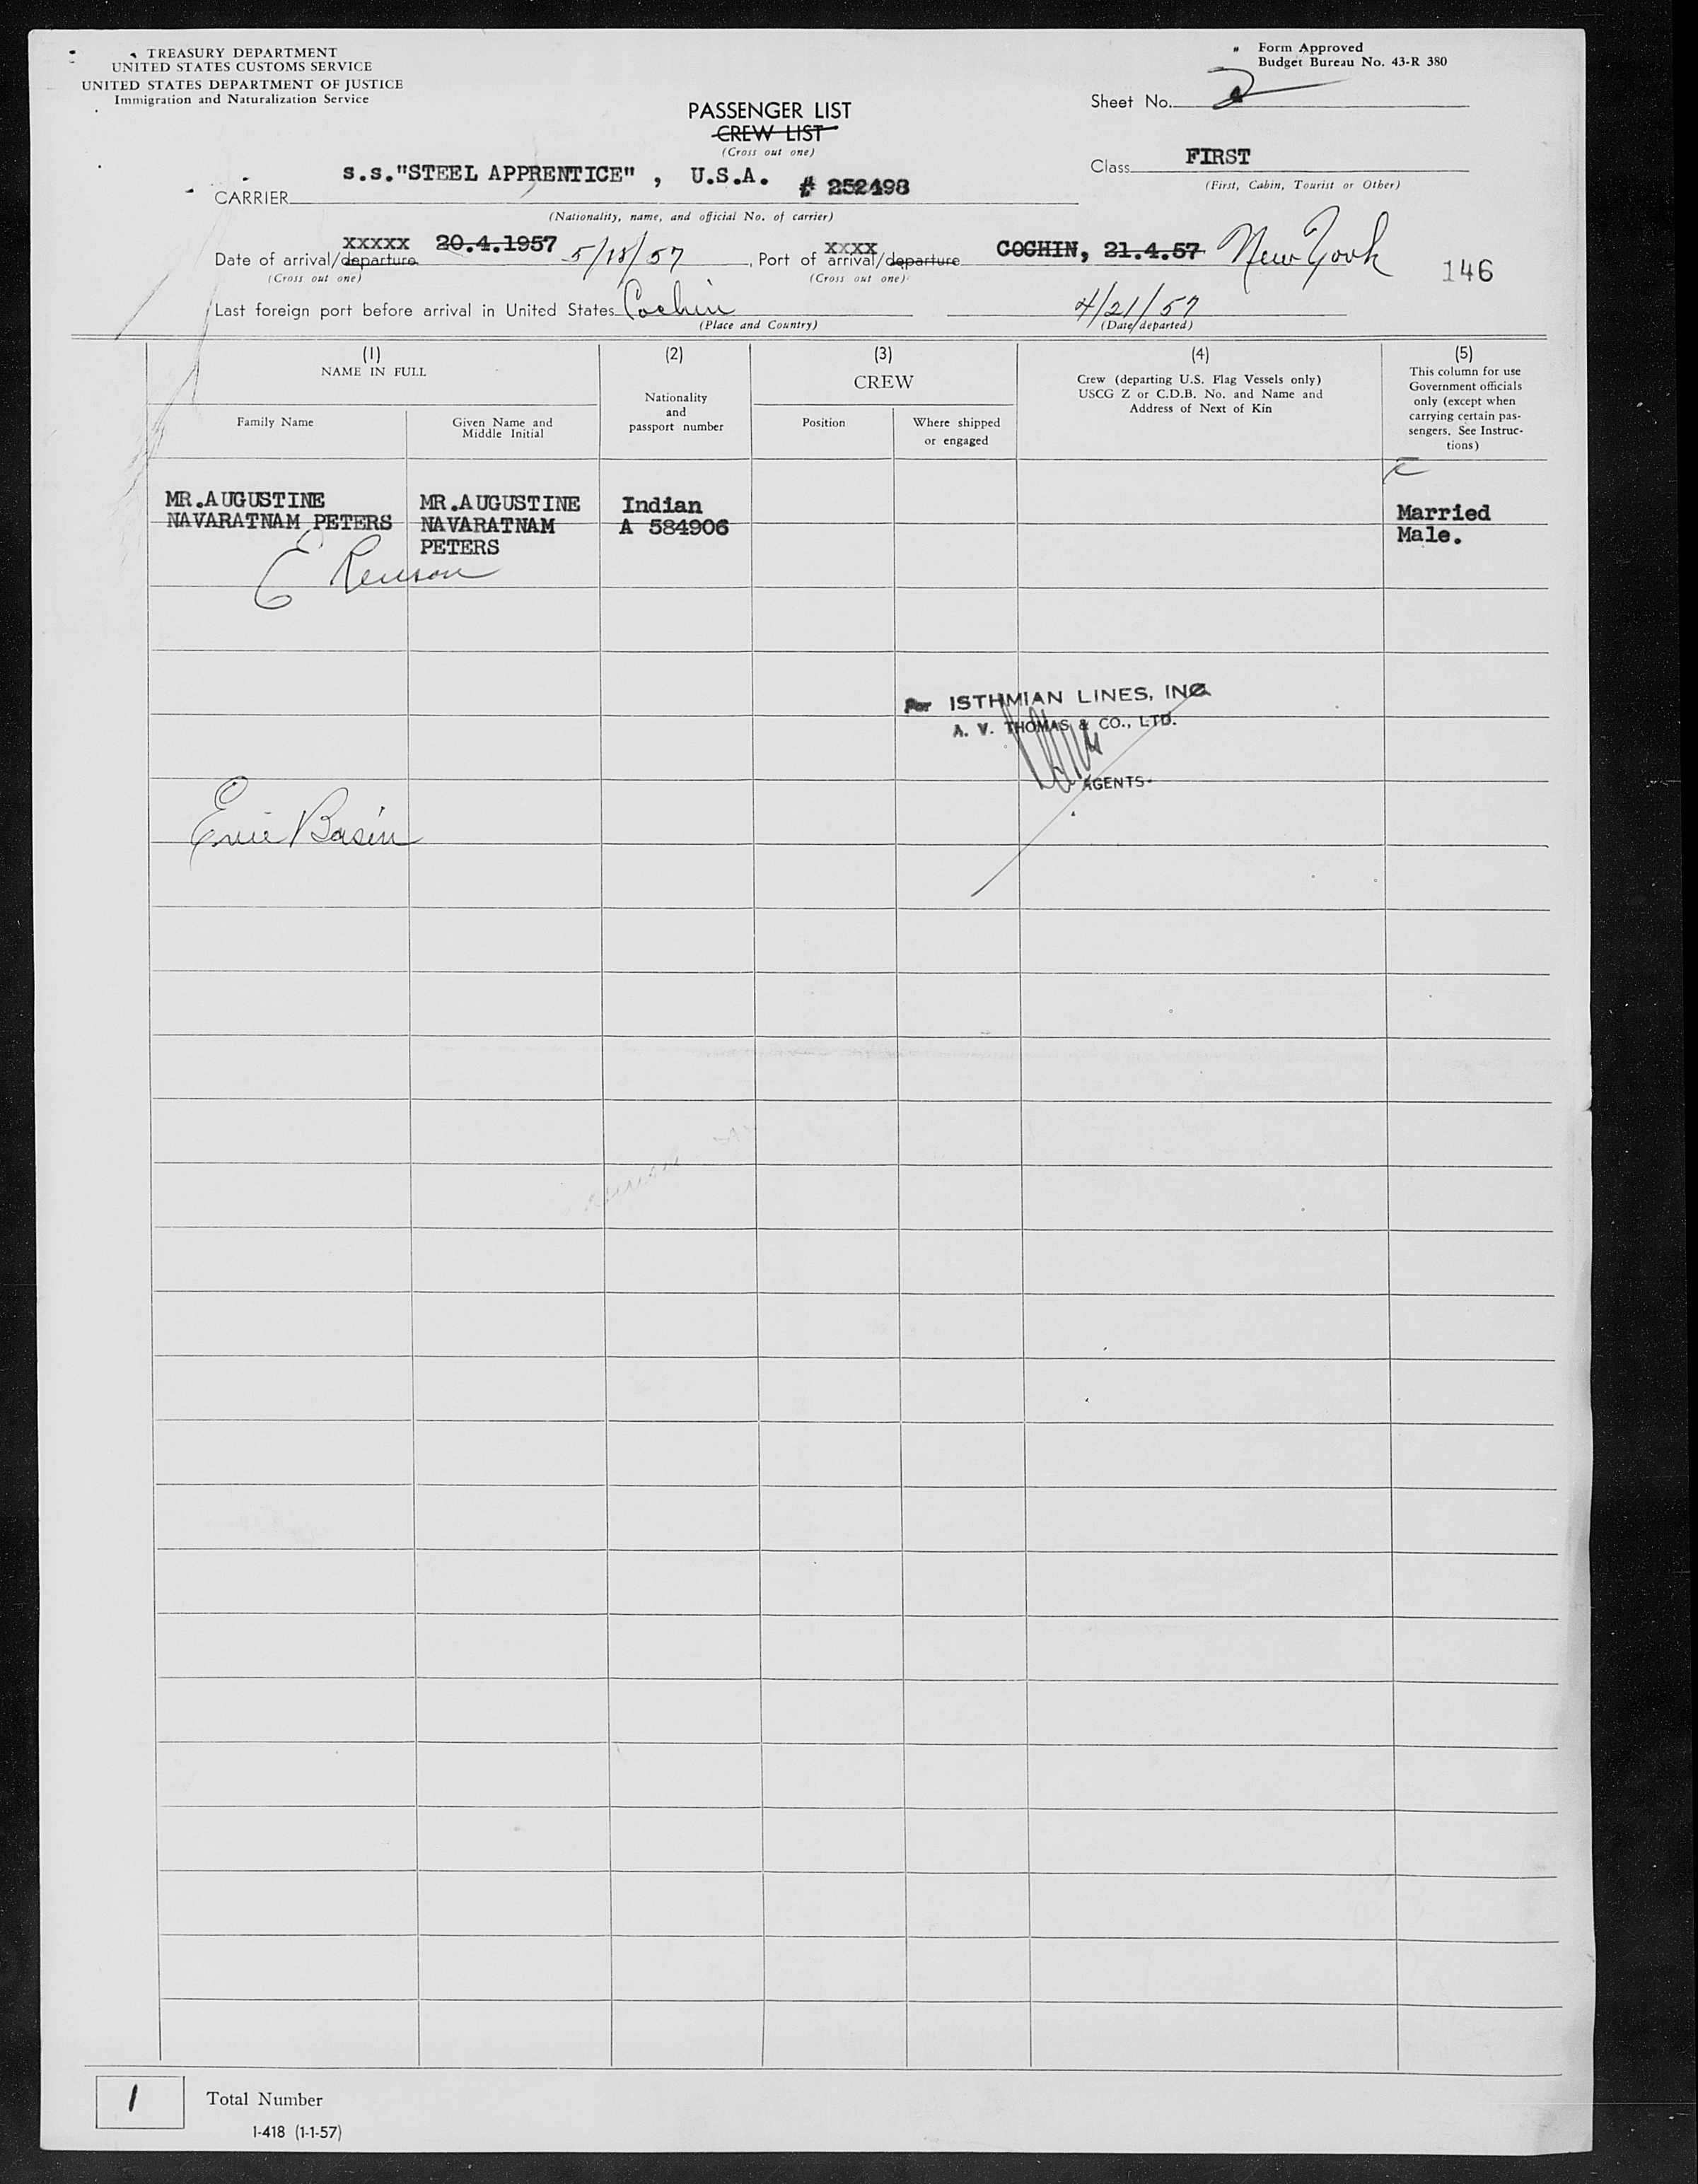 TREASURY DEPARTMENT
UNITED STATES CUSTOMS SERVICE
UNITED STATES DEPARTMENT OF JUSTICE
Immigration and Naturalization Service
Form Approved
Budget Bureau No. 43-R 380
Sheet No. 2
PASSENGER LIST
CREW LIST
(Cross out one)
Class FIRST
(First, Cabin, Tourist or Other)
CARRIER s.s."STEEL APPRENTICE" , U.S.A. # 252498
(Nationality, name, and official No. of carrier)
xxxxx xxxx
Date of arrival/departure 20.4.1957 5/18/57, Port of arrival/departure COCHIN, 21.4.57 New York
(Cross out one) (Cross out one)
146
Last foreign port before arrival in United States Cochin 4/21/57
(Place and Country) (Date departed)
(1)
NAME IN FULL
Family Name
Given Name and
Middle Initial
(2)
Nationality
and
passport number
(3)
CREW
Position
Where shipped
or engaged
(4)
Crew (departing U.S. Flag Vessels only)
USCG Z or C.D.B. No. and Name and
Address of Next of Kin
(5)
This column for use
Government officials
only (except when
carrying certain pas-
sengers. See Instruc-
tions)
MR.AUGUSTINE
NAVARATNAM PETERS
MR.AUGUSTINE
NAVARATNAM
PETERS
Indian
A 584906
Married
Male.
E
For ISTHMIAN LINES, INC.
A. V. THOMAS & CO., LTD.
AGENTS.
Erie Basin
1
Total Number
I-418 (1-1-57)